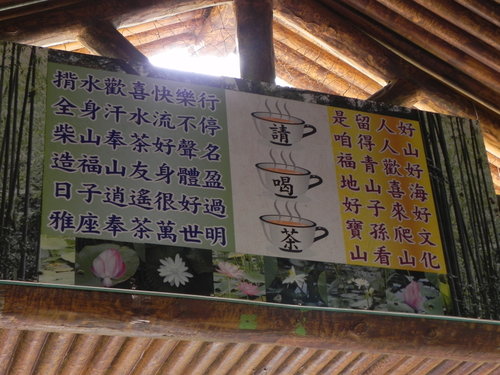 揹水歡喜快樂行
全身汗水流不停
柴山奉茶好聲名
造福山友身體盈
日子逍遙很好過
雅座奉茶萬世明
請
喝
茶
好山好海好文化
人人歡喜來爬山
留得青山子孫看
是咱福地好寶山